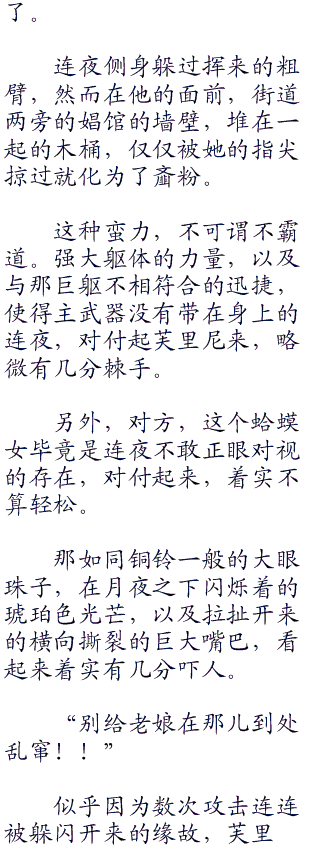 了。
连夜侧身躲过挥来的粗
臂，然而在他的面前，街道
两旁的娼馆的墙壁，堆在一
起的木桶，仅仅被她的指尖
掠过就化为了齑粉。
这种蛮力，不可谓不霸
道。强大躯体的力量，以及
与那巨躯不相符合的迅捷，
使得主武器没有带在身上的
连夜，对付起芙里尼来，略
微有几分棘手。
另外，对方，这个蛤蟆
女毕竟是连夜不敢正眼对视
的存在，对付起来，着实不
算轻松。
那如同铜铃一般的大眼
珠子，在月夜之下闪烁着的
琥珀色光芒，以及拉扯开来
的横向撕裂的巨大嘴巴，看
起来着实有几分吓人。
“别给老娘在那儿到处
乱窜！！”
似乎因为数次攻击连连
被躲闪开来的缘故，芙里